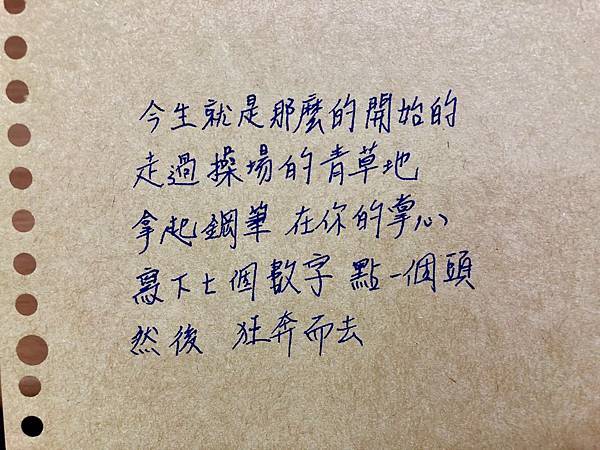 今生就是那麼的開始的
走過操場的青草地
拿起鋼筆 在你的掌心
寫下七個數字 點一個頭
然後 狂奔而去